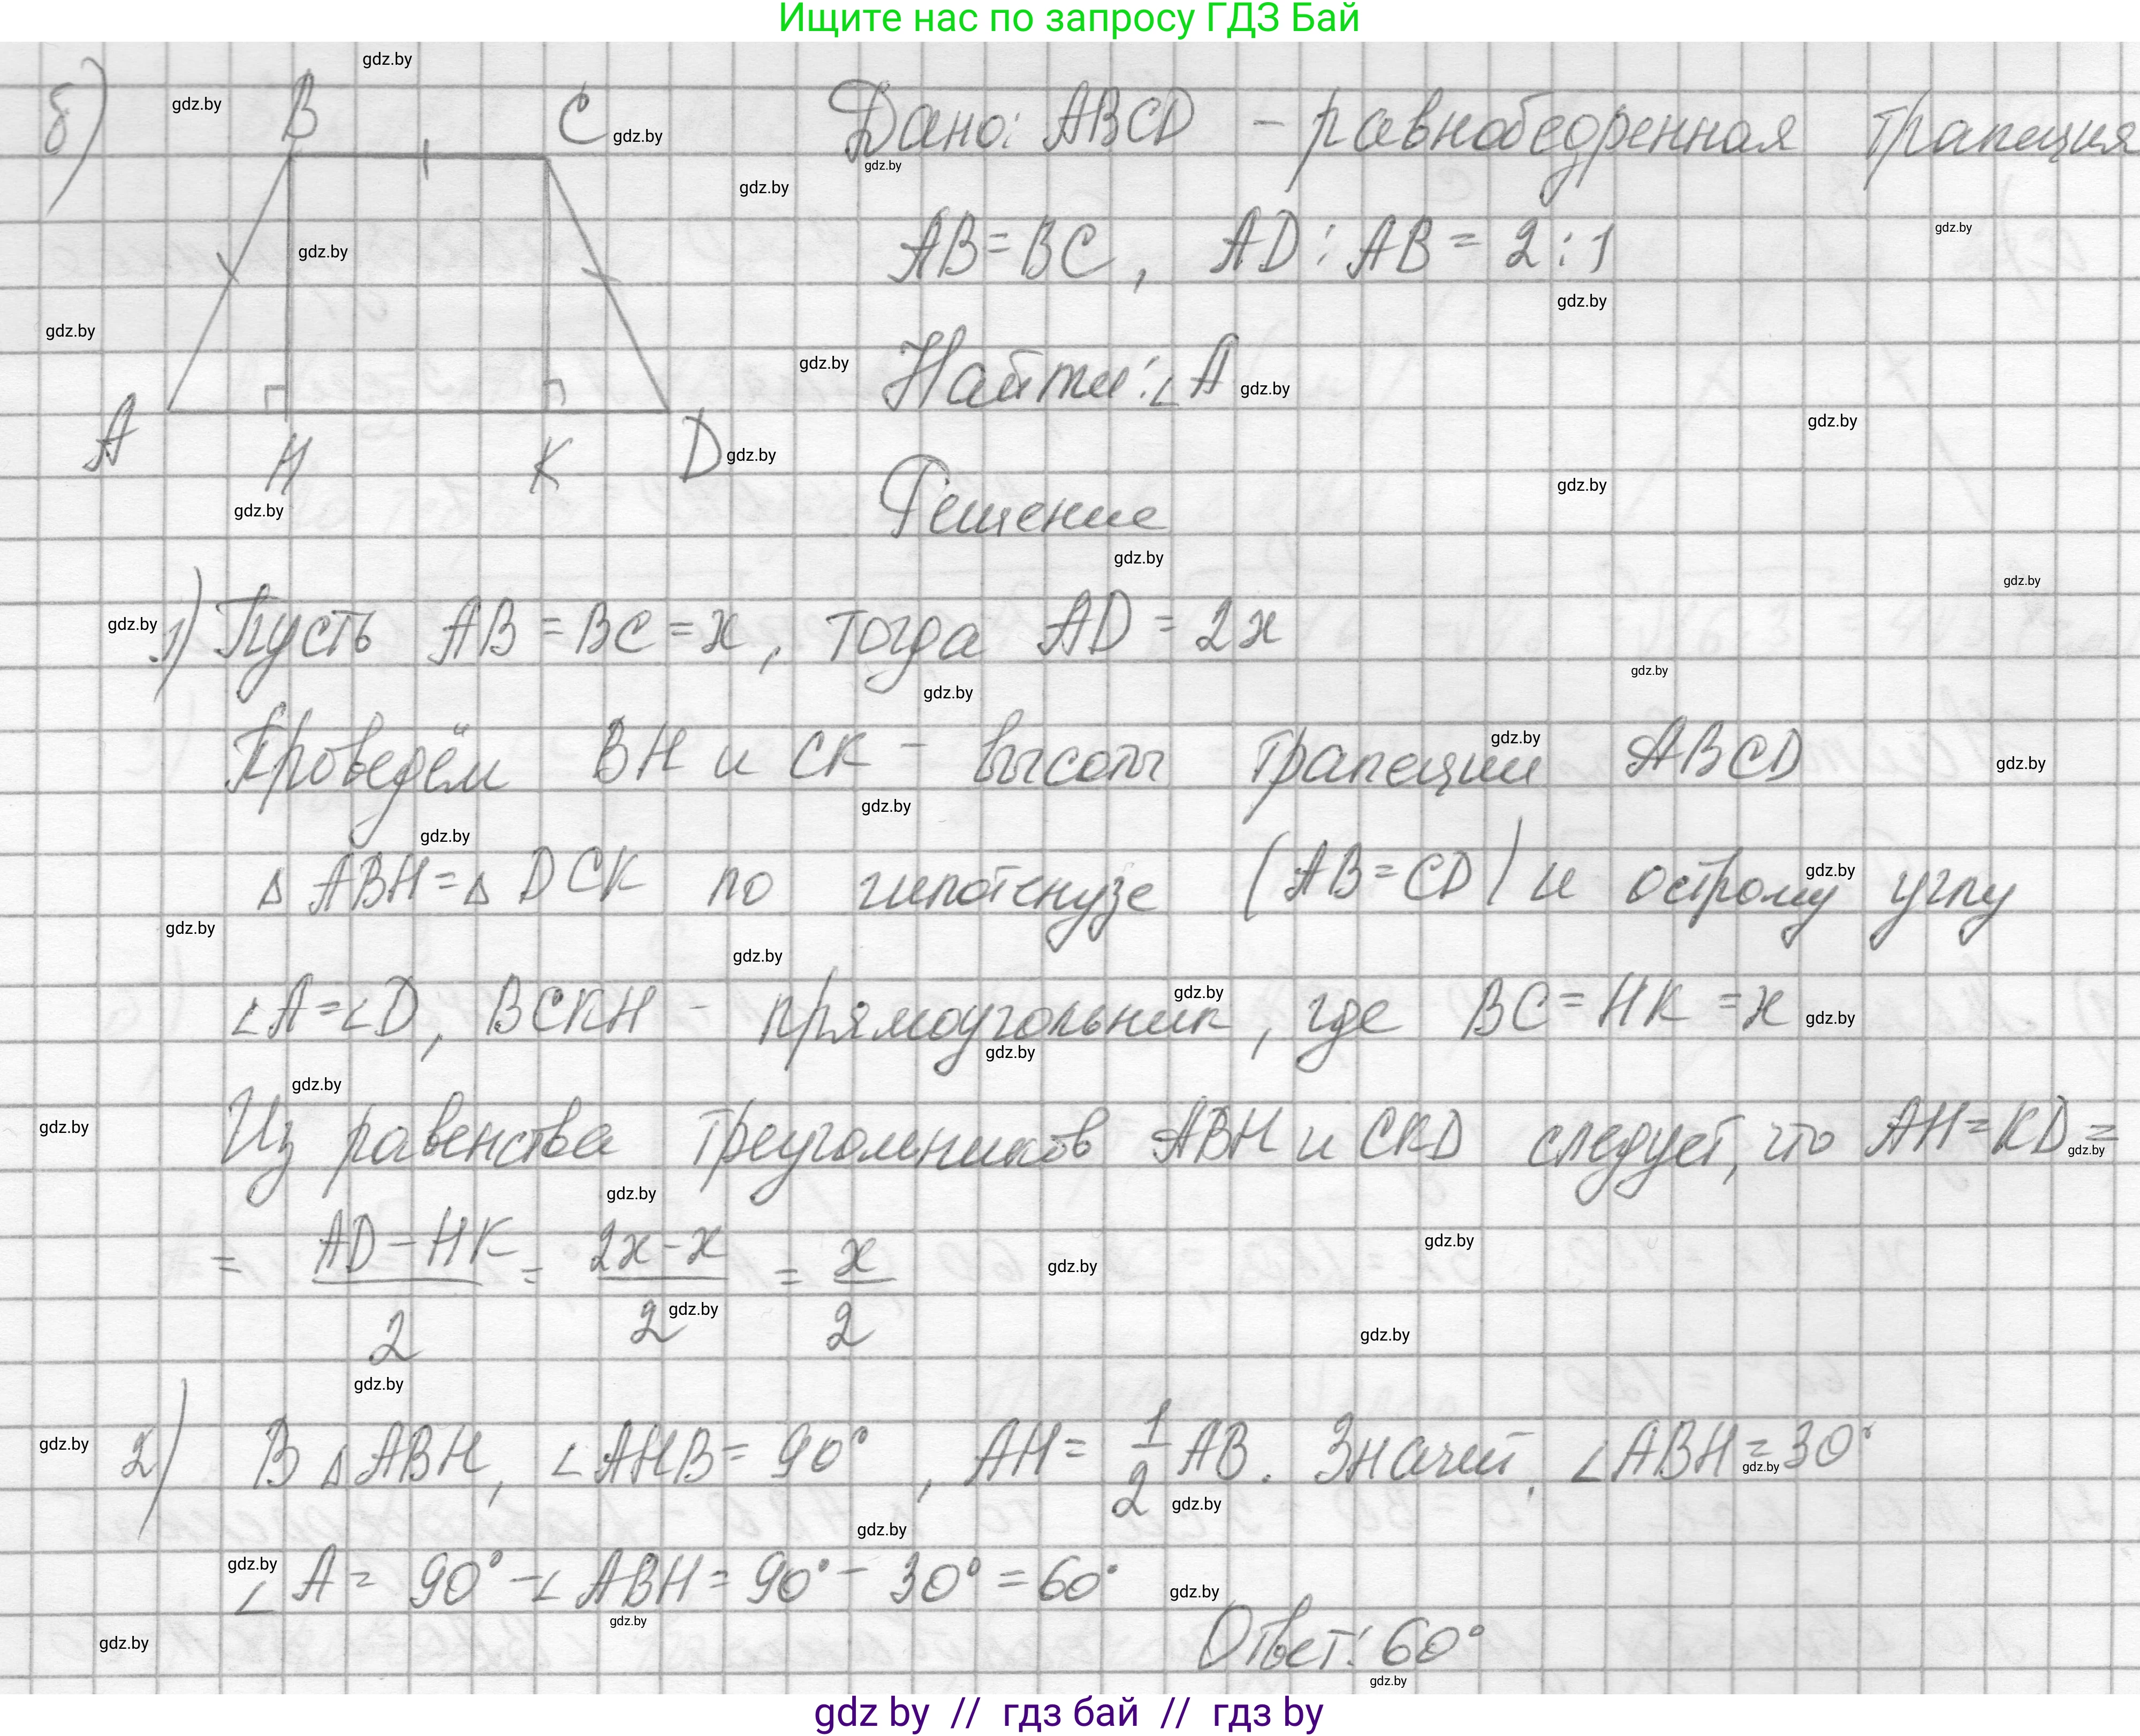 Ищите нас по запросу ГДЗ Бай
б)
B
C
A
H
K
D
Дано: ABCD – равнобедренная трапеция
AB = BC, AD : AB = 2 : 1
Найти: ∠A
Решение
1) Пусть AB = BC = x, тогда AD = 2x
Проведём BH и CK – высоты трапеции ABCD
△ ABH = △ DCK по гипотенузе (AB = CD) и острому углу
∠A = ∠D, BCKH – прямоугольник, где BC = HK = x
Из равенства треугольников ABH и CKD следует, что AH = KD =
= (AD – HK)/2 = (2x – x)/2 = x/2
2) В △ ABH, ∠AHB = 90°, AH = 1/2 AB. Значит, ∠ABH = 30°
∠A = 90° – ∠ABH = 90° – 30° = 60°
Ответ: 60°
gdz by // гдз бай // гдз by